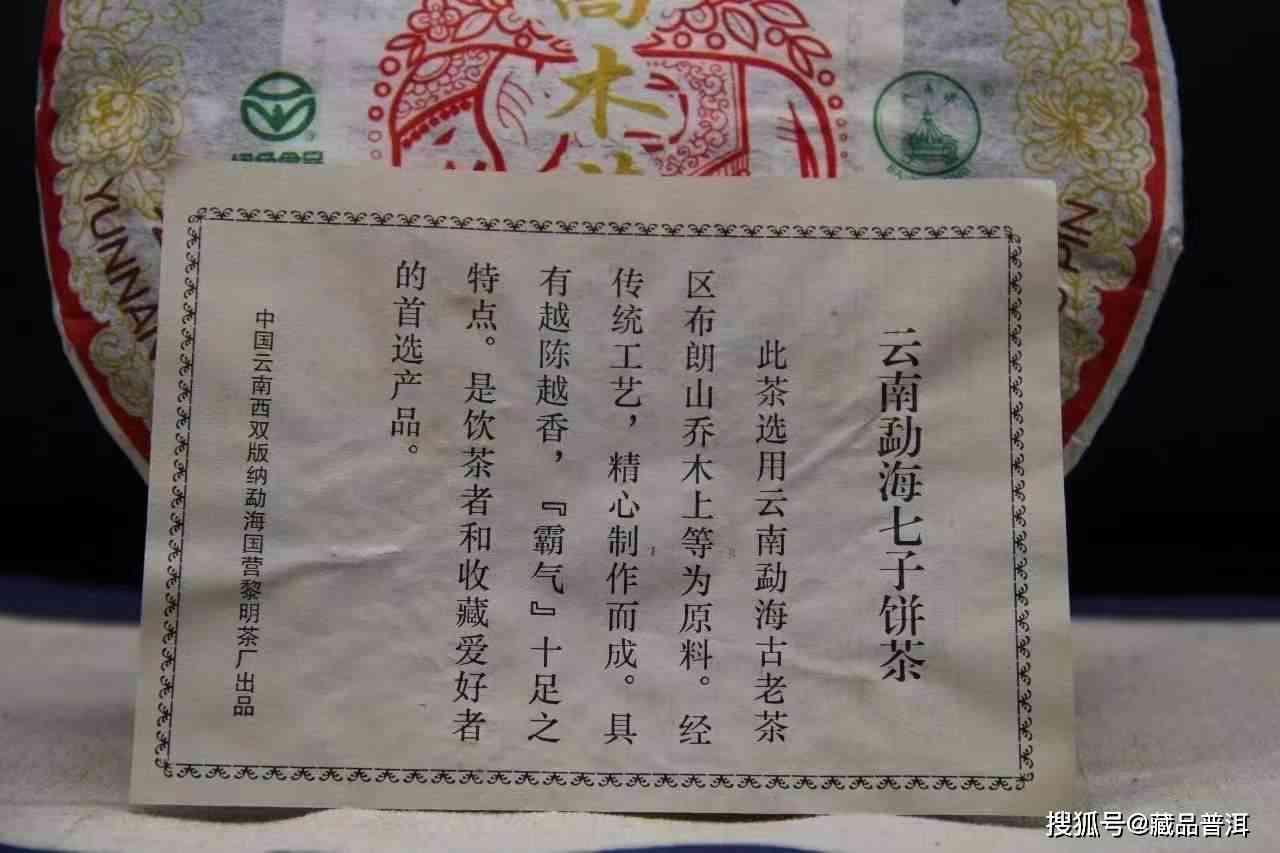 乔木
YUNNAN
云南勐海七子饼茶
此茶选用云南勐海古老茶
区布朗山乔木上等为原料。经
传统工艺，精心制作而成。具
有越陈越香，『霸气』十足之
特点。是饮茶者和收藏爱好者
的首选产品。
中国云南西双版纳勐海国营黎明茶厂出品
搜狐号@藏品普洱